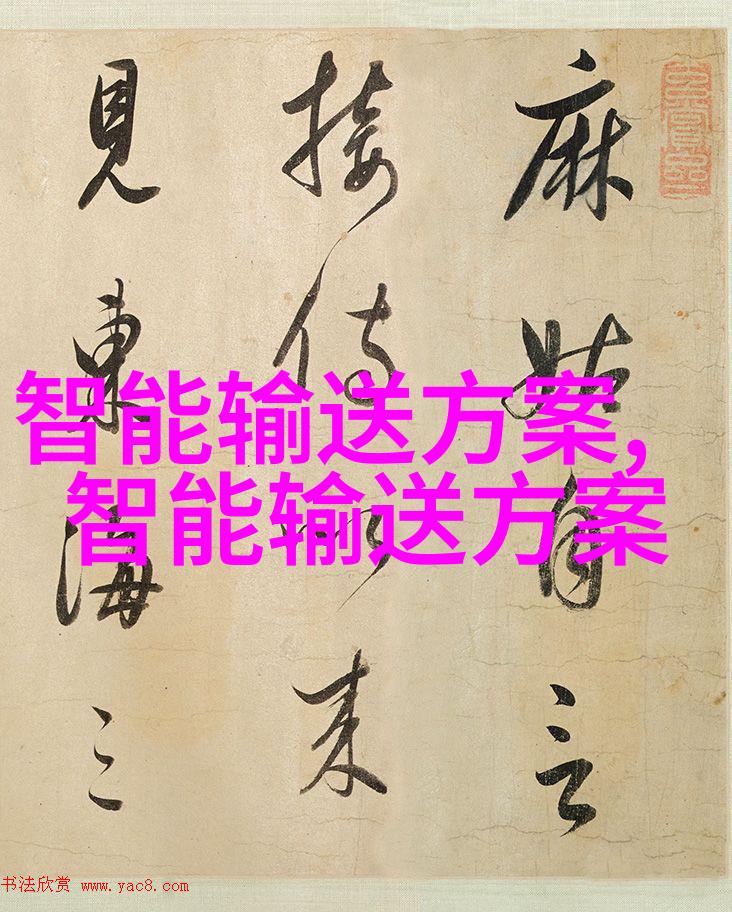 麻姑自言
接侍以来
見東海三
智能输送方案,
智能输送方案
书法欣赏 www.yac8.com